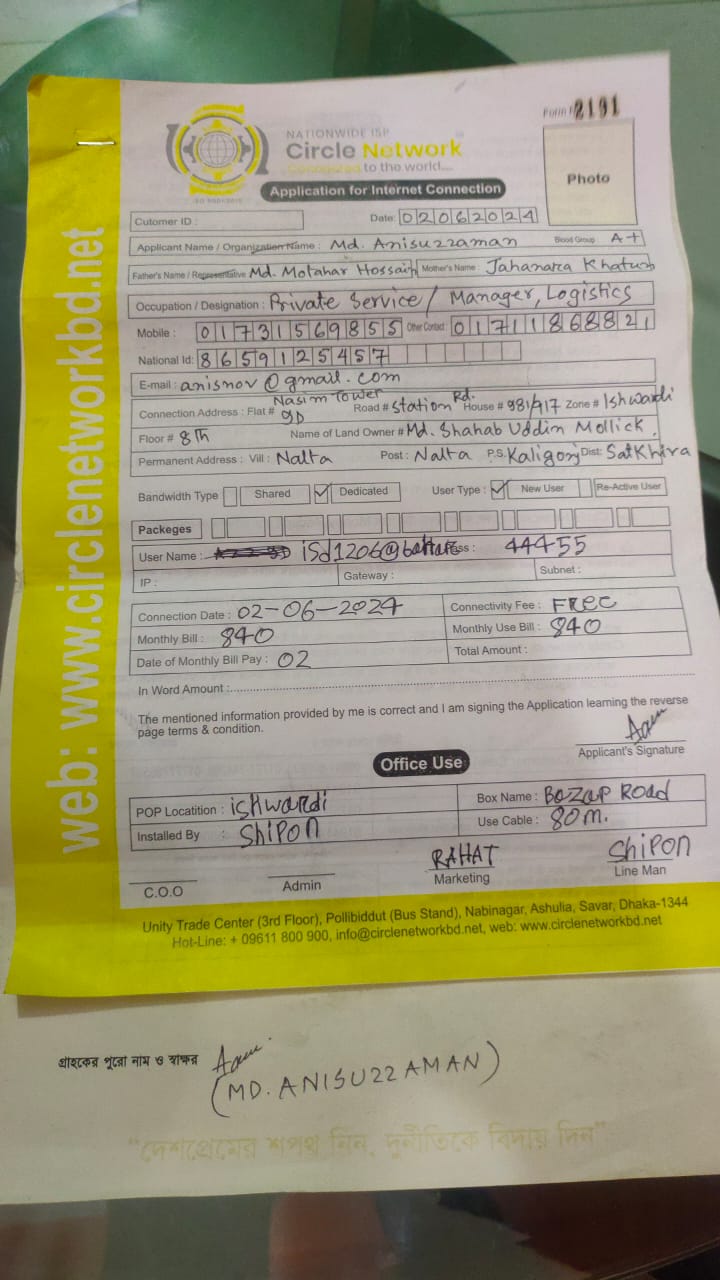 Form # 2191
NATIONWIDE ISP
Circle Network
Connected to the world....
Application for Internet Connection
Photo
web: www.circlenetworkbd.net
Cutomer ID : Date: 02062024
Applicant Name / Organization Name : Md. Anisuzzaman Blood Group A+
Father's Name / Representative Md. Motahar Hossain Mother's Name : Jahanara Khatun
Occupation / Designation : Private Service / Manager, Logistics
Mobile : 01731569855 Other Contact : 01711868821
National Id: 8659125457
E-mail : anisnov@gmail.com
Nasim Tower
Connection Address : Flat # 9D Road # Station Rd. House # 981/917 Zone # Ishwardi
Floor # 8Th Name of Land Owner # Md. Shahab Uddin Mollick.
Permanent Address : Vill : Nalta Post : Nalta P.S. Kaligonj Dist: Satkhira
Bandwidth Type Shared Dedicated User Type : New User Re-Active User
Packeges
User Name : isd1206@ : 44455
IP : Gateway : Subnet :
Connection Date : 02-06-2024 Connectivity Fee : Free
Monthly Bill : 840 Monthly Use Bill : 840
Date of Monthly Bill Pay : 02 Total Amount :
In Word Amount :
The mentioned information provided by me is correct and I am signing the Application learning the reverse
page terms & condition.
Applicant's Signature
Office Use
POP Locatition : ishwardi Box Name : Bazar Road
Installed By : Shipon Use Cable : 80m.
RAHAT Shipon
C.O.O Admin Marketing Line Man
Unity Trade Center (3rd Floor), Pollibiddut (Bus Stand), Nabinagar, Ashulia, Savar, Dhaka-1344
Hot-Line: + 09611 800 900, info@circlenetworkbd.net, web: www.circlenetworkbd.net
গ্রাহকের পুরো নাম ও স্বাক্ষর
(MD. ANISUZZAMAN)
"দেশপ্রেমের শপথ নিন, দুর্নীতিকে বিদায় দিন"